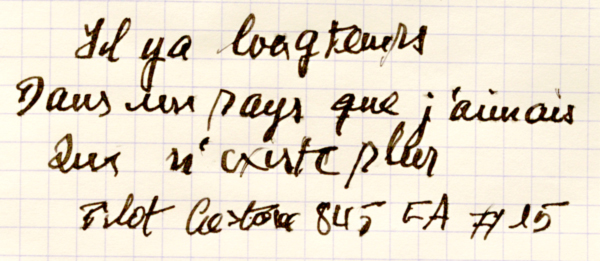 Il y a longtemps
Dans un pays que j'aimais
Qui n'existe plus
Pilot Custom 845 FA #15